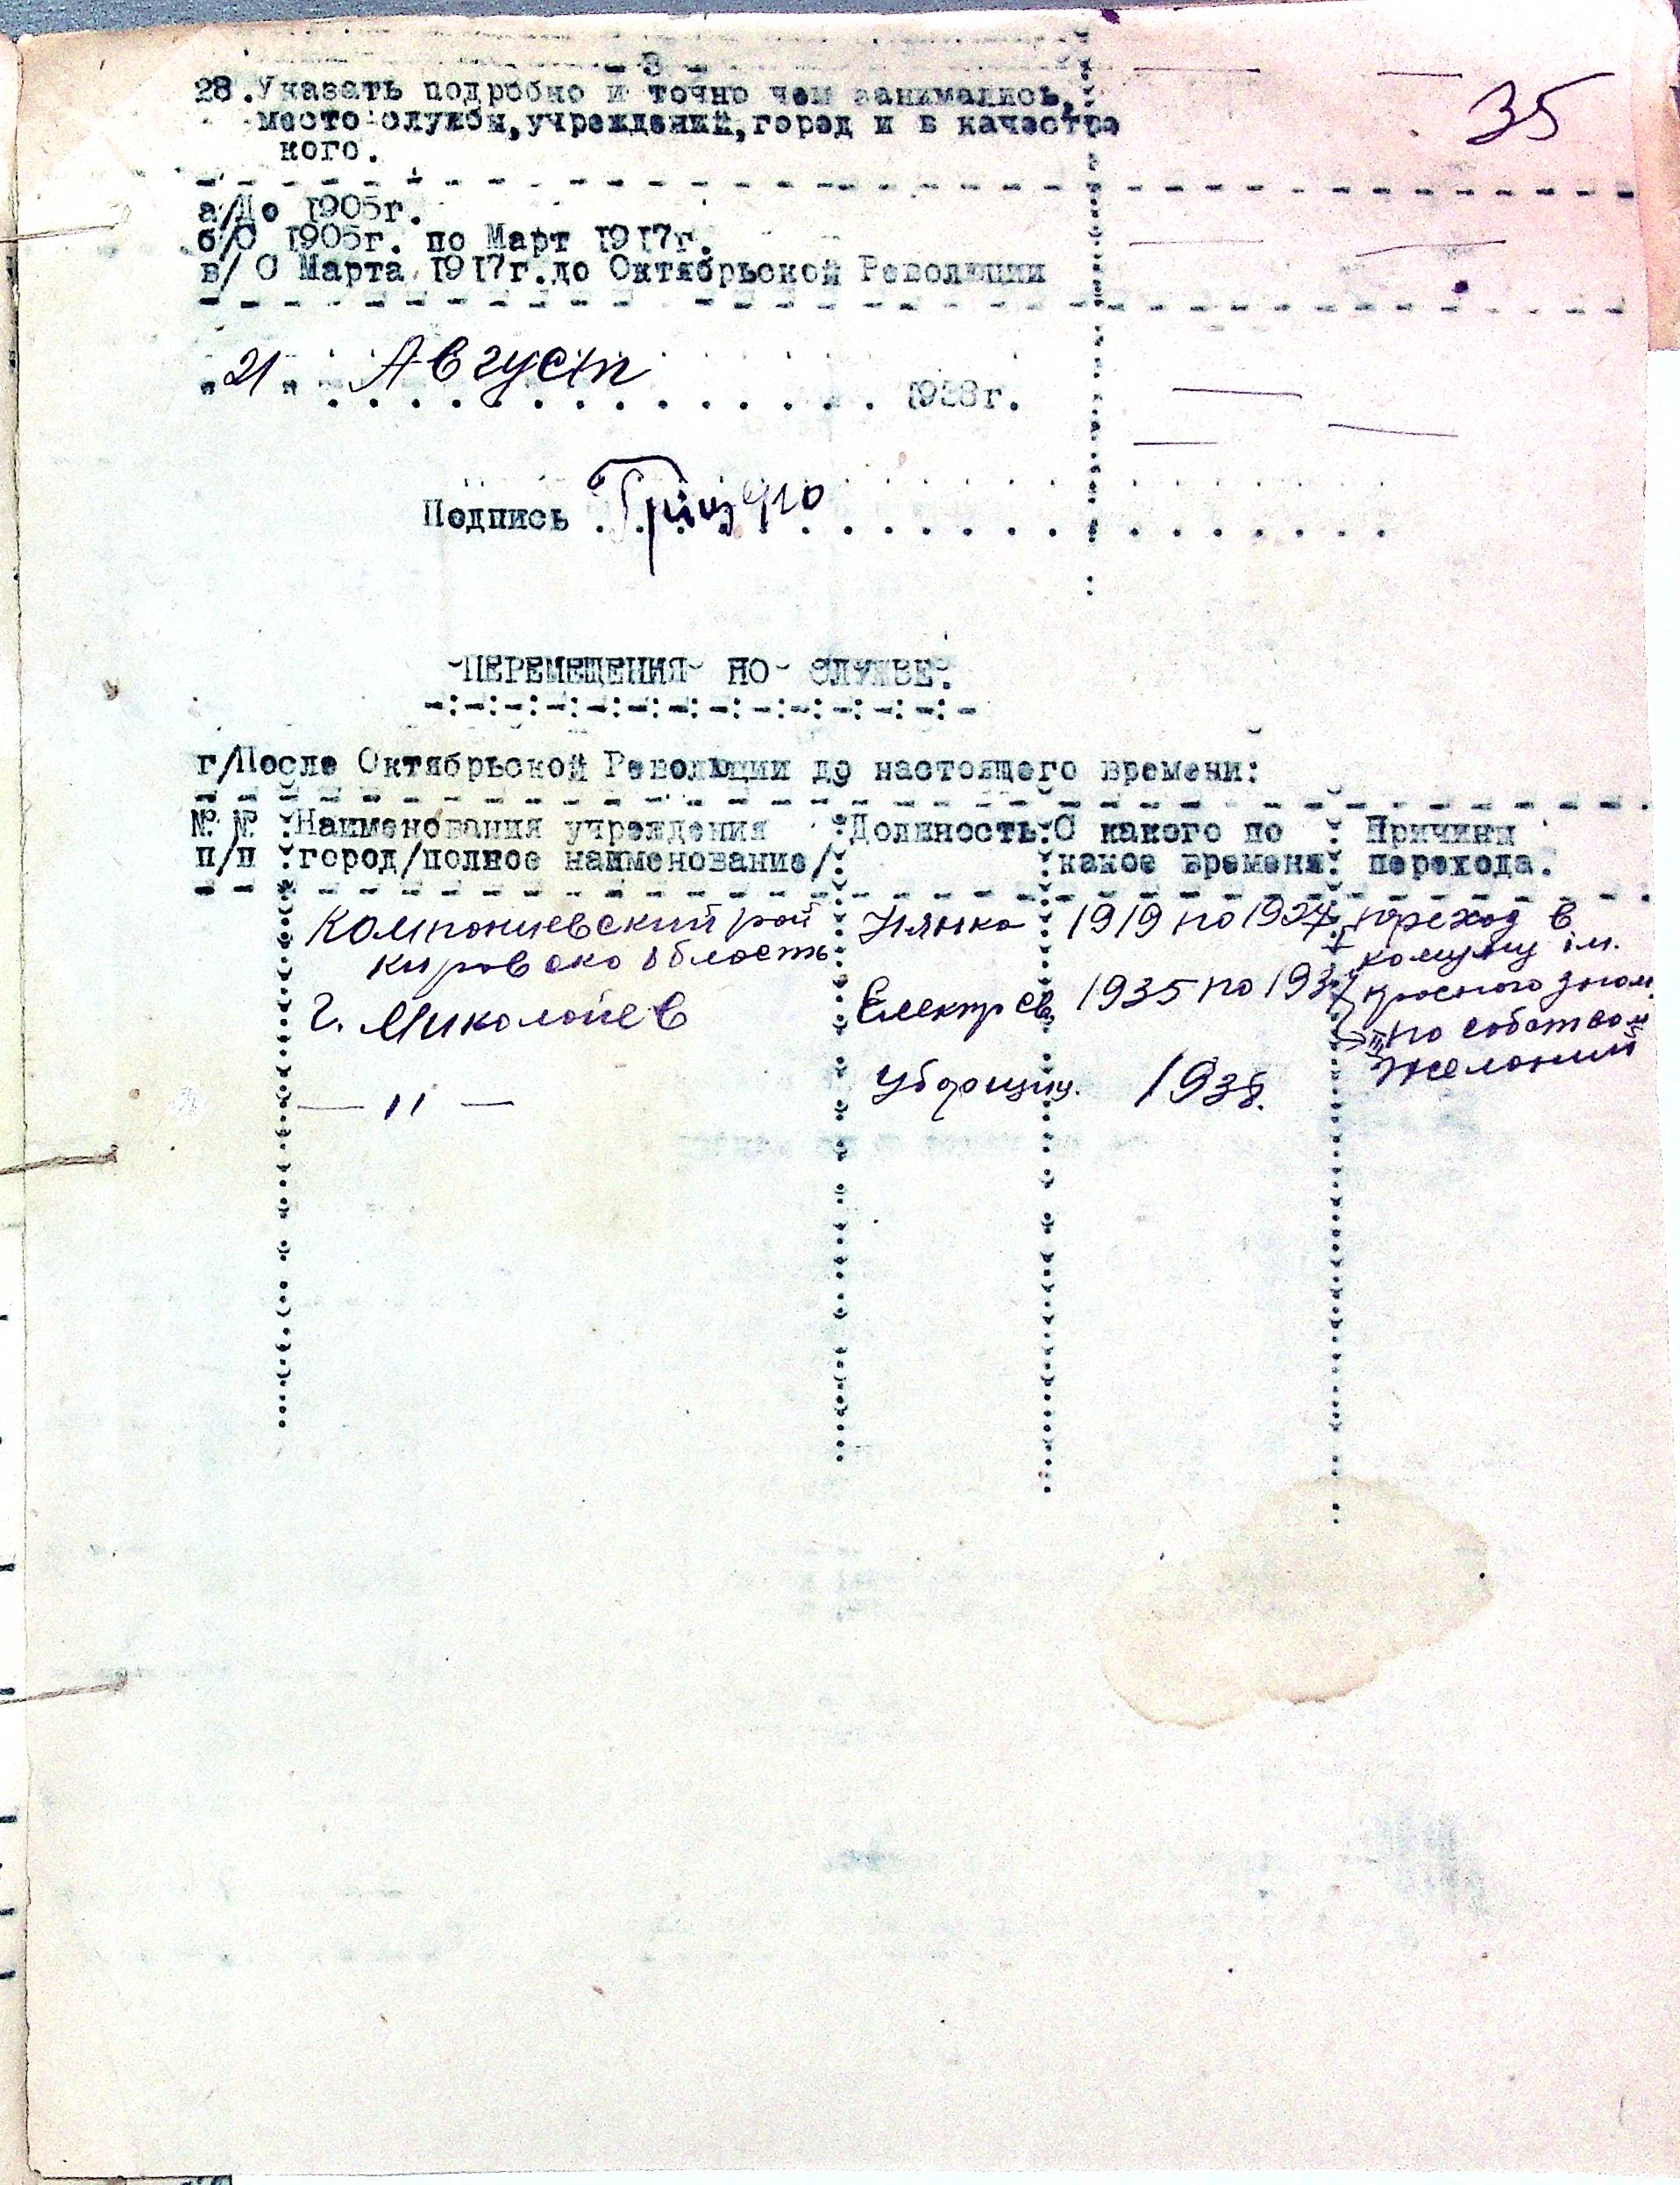 - 3 -
35
28. Указать подробно и точно чем занимались,
место службы, учреждений, город и в качестве
кого.
а/До 1905г.
б/С 1905г. по Март 1917г.
в/ С Марта 1917г. до Октябрьской Революции
"21" Август 1938г.
Подпись
ПЕРЕМЕЩЕНИЯ ПО СЛУЖБЕ.
г/После Октябрьской Революции до настоящего времени:
№ № Наименования учреждения Должность С какого по Причины
п/п город/полное наименование/ какое времени перехода.
Компониевский рай Нянка 1919 по 1924 переход в
Кировско область комуну ім.
Красного знам.
г. Миколаїев Електр 1935 по 1937
по собствен
желаний
— " — Уборщиц. 1938.